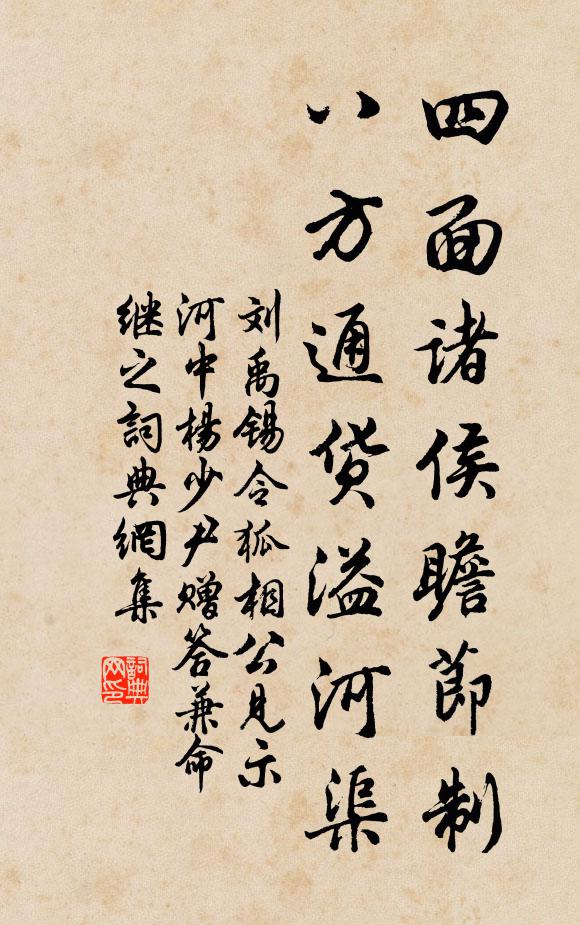 四面诸侯瞻節制
八方通货溢河渠
刘禹锡令狐相公見示
河中楊少尹赠答兼命
继之詞典網集
詞典网印